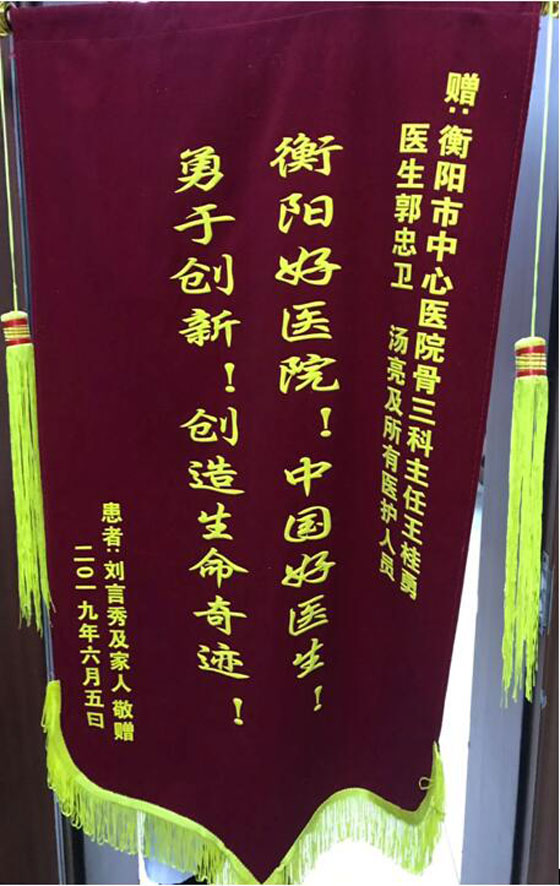 赠：衡阳市中心医院骨三科主任王桂勇
医生郭忠卫 汤亮及所有医护人员
衡阳好医院！中国好医生！
勇于创新！创造生命奇迹！
患者：刘言秀及家人敬赠
二〇一九年六月五日